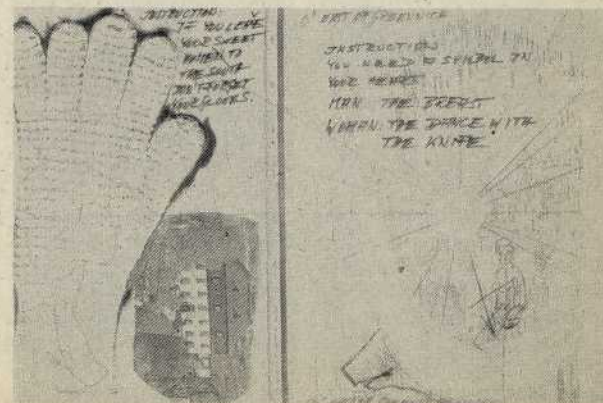 INSTRUCTION:
IF YOU LOVE
YOUR SWEET
WOMEN TO
THE SOUTH
DON'T FORGET
YOUR GLOVES.
EAST OF GREENWICH
INSTRUCTION
YOU NEED A SYMBOL IN
YOUR HEART
MAN THE BREAST
WOMAN: THE DANCE WITH
THE KNIFE